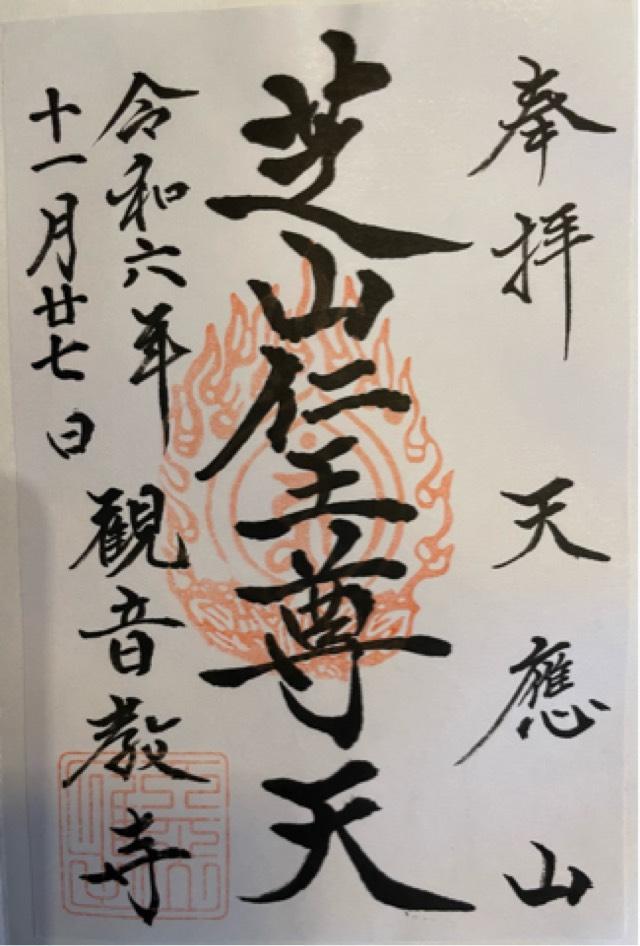 奉拝 天應山
芝山仁王尊天
令和六年
十一月廿七日
観音教寺